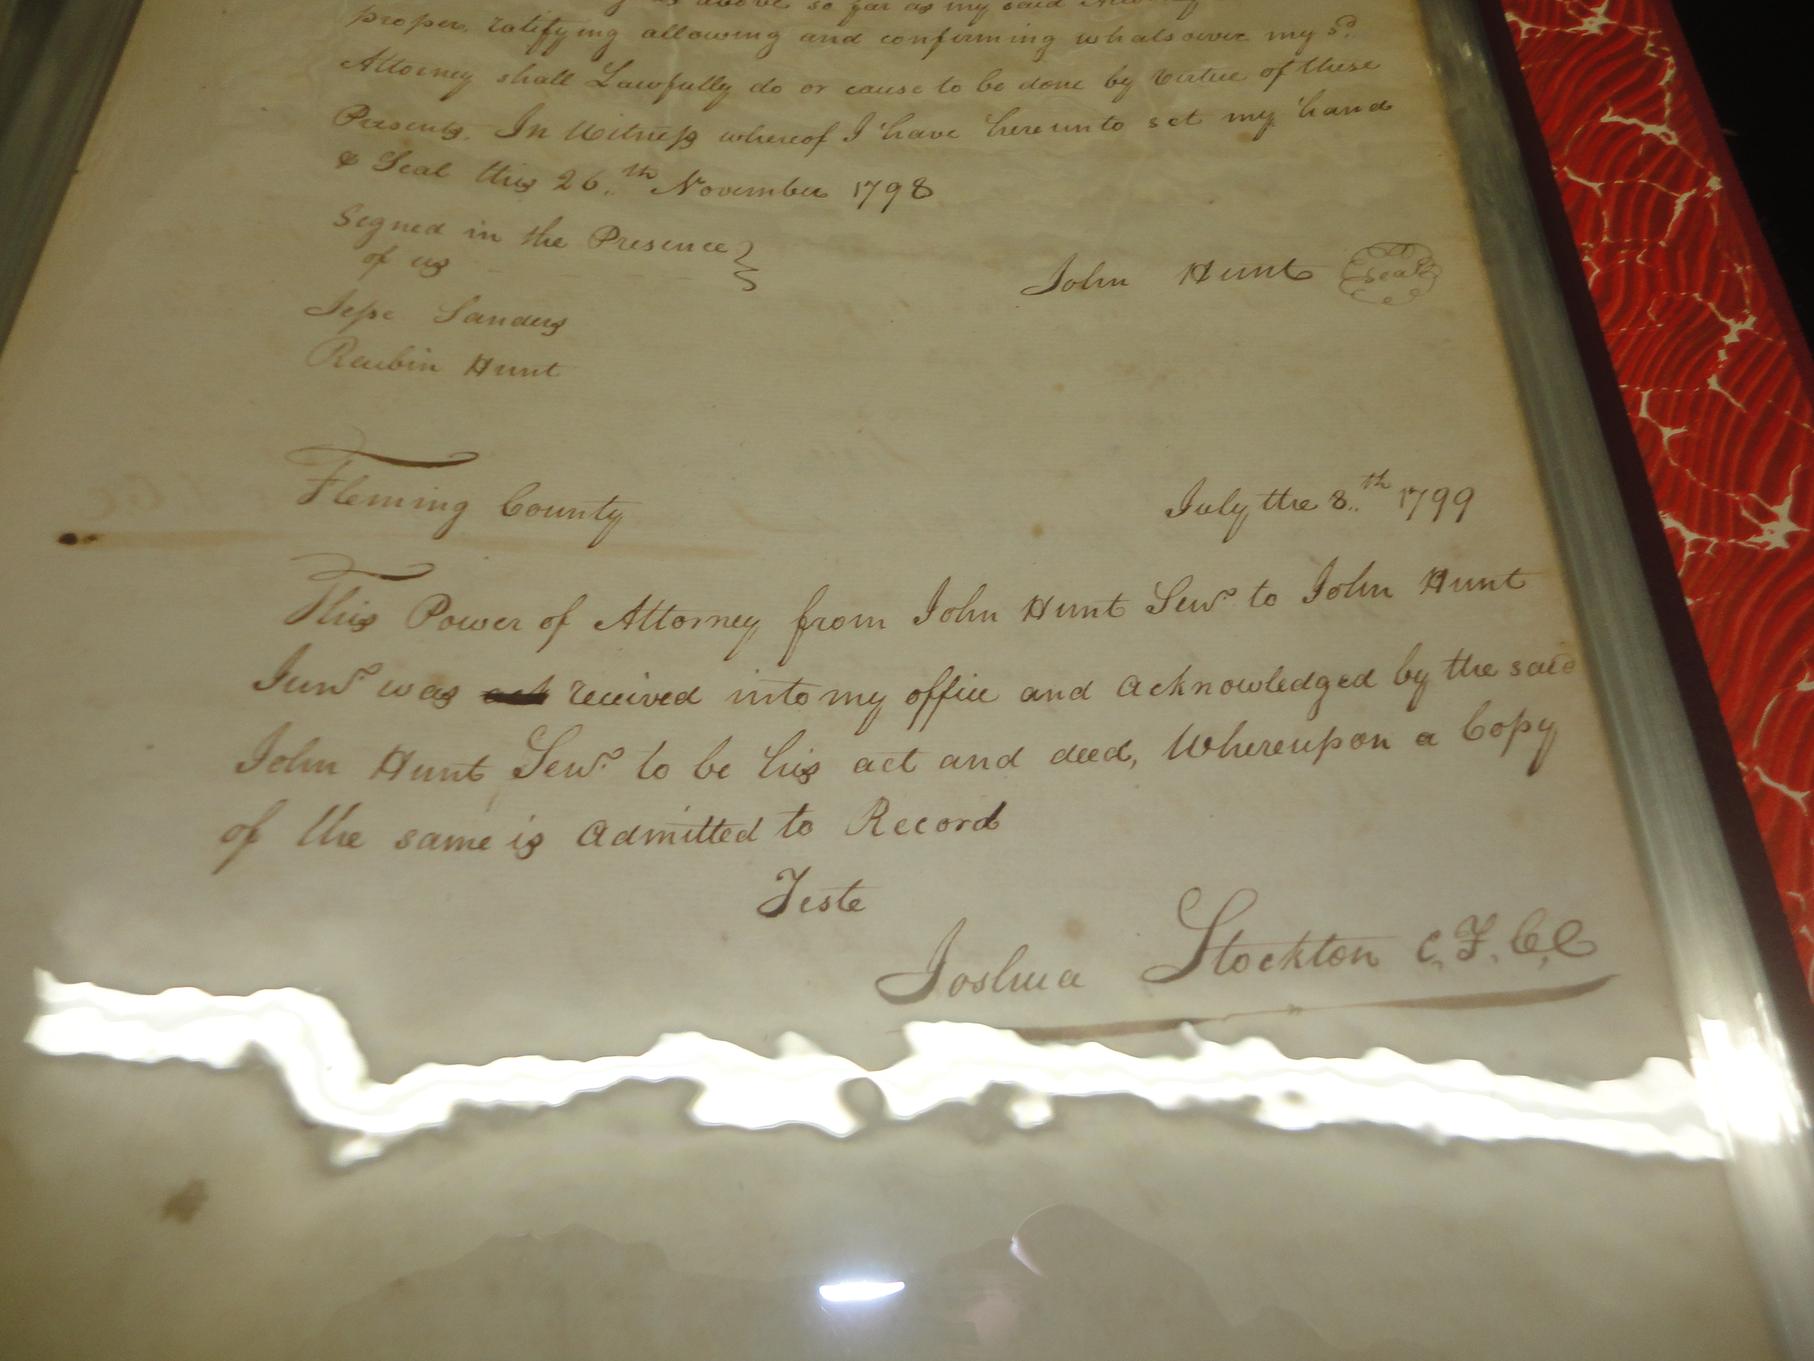 above so far as my said Attorney
proper, ratifying allowing and confirming whatsoever my sd.
Attorney shall Lawfully do or cause to be done by Virtue of these
Presents. In Witness whereof I have hereunto set my hand
& Seal this 26th November 1798
Signed in the Presence
of us
John Hunt Seal
Jesse Sanders
Reubin Hunt
Fleming County July the 8th 1799
This Power of Attorney from John Hunt Senr. to John Hunt
Junr. was received into my office and acknowledged by the said
John Hunt Senr. to be his act and deed, Whereupon a Copy
of the same is admitted to Record
Teste
Joshua Stockton C. F. C. C